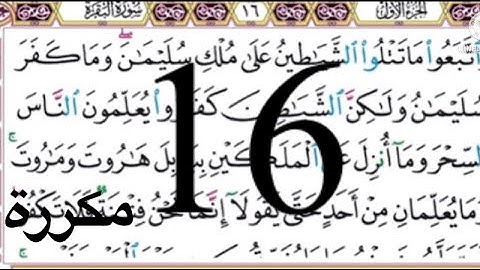 الجزء الأول ١٦ سورة البقرة
اتبعوا ما تتلوا الشياطين على ملك سليمان وما كفر
سليمان ولكن الشياطين كفروا يعلمون الناس
السحر وما أنزل على الملكين ببابل هاروت وماروت
وما يعلمان من أحد حتى يقولا إنما نحن فتنة فلا تكفر
16
مكررة